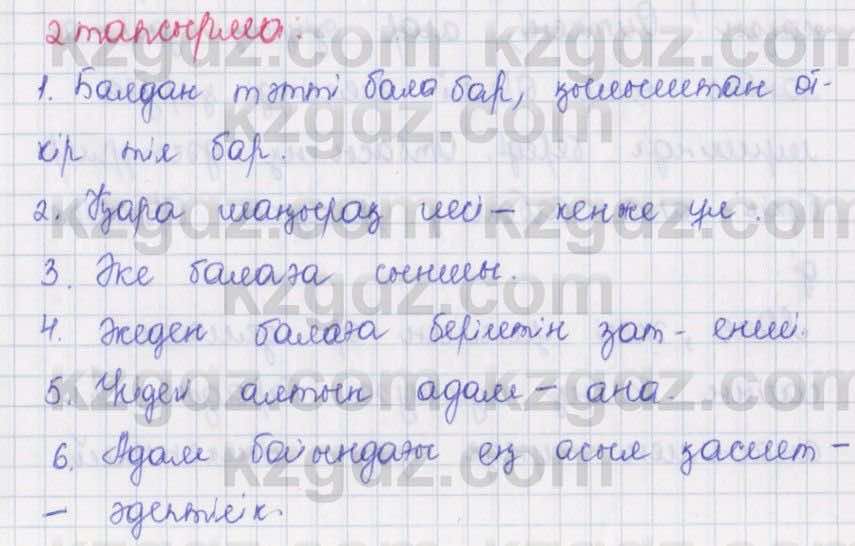 2 тапсырма:
1. Балдан тәтті бала бар, қылыштан өт-
кір тіл бар.
2. Қара шаңырақ иесі – кенже ұл.
3. Әке балаға сыншы.
4. Әкеден балаға берілетін зат - енші.
5. Үйдегі алтын адам – ана.
6. Адам бойындағы ең асыл қасиет –
– әдептілік.
kzgdz.com